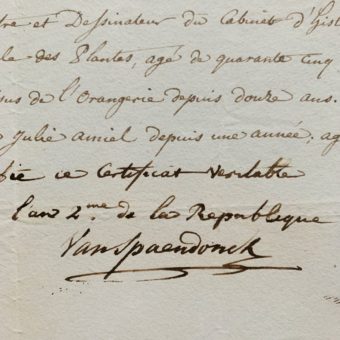 tre et Dessinateur du Cabinet d'hist
le des Plantes, agé de quarante cinq
sus de l'Orangerie depuis douze ans.
Julie amiel depuis une année; ag
fie ce Certificat Veritable
l'an 2.me de la Republique
VanSpaendonck